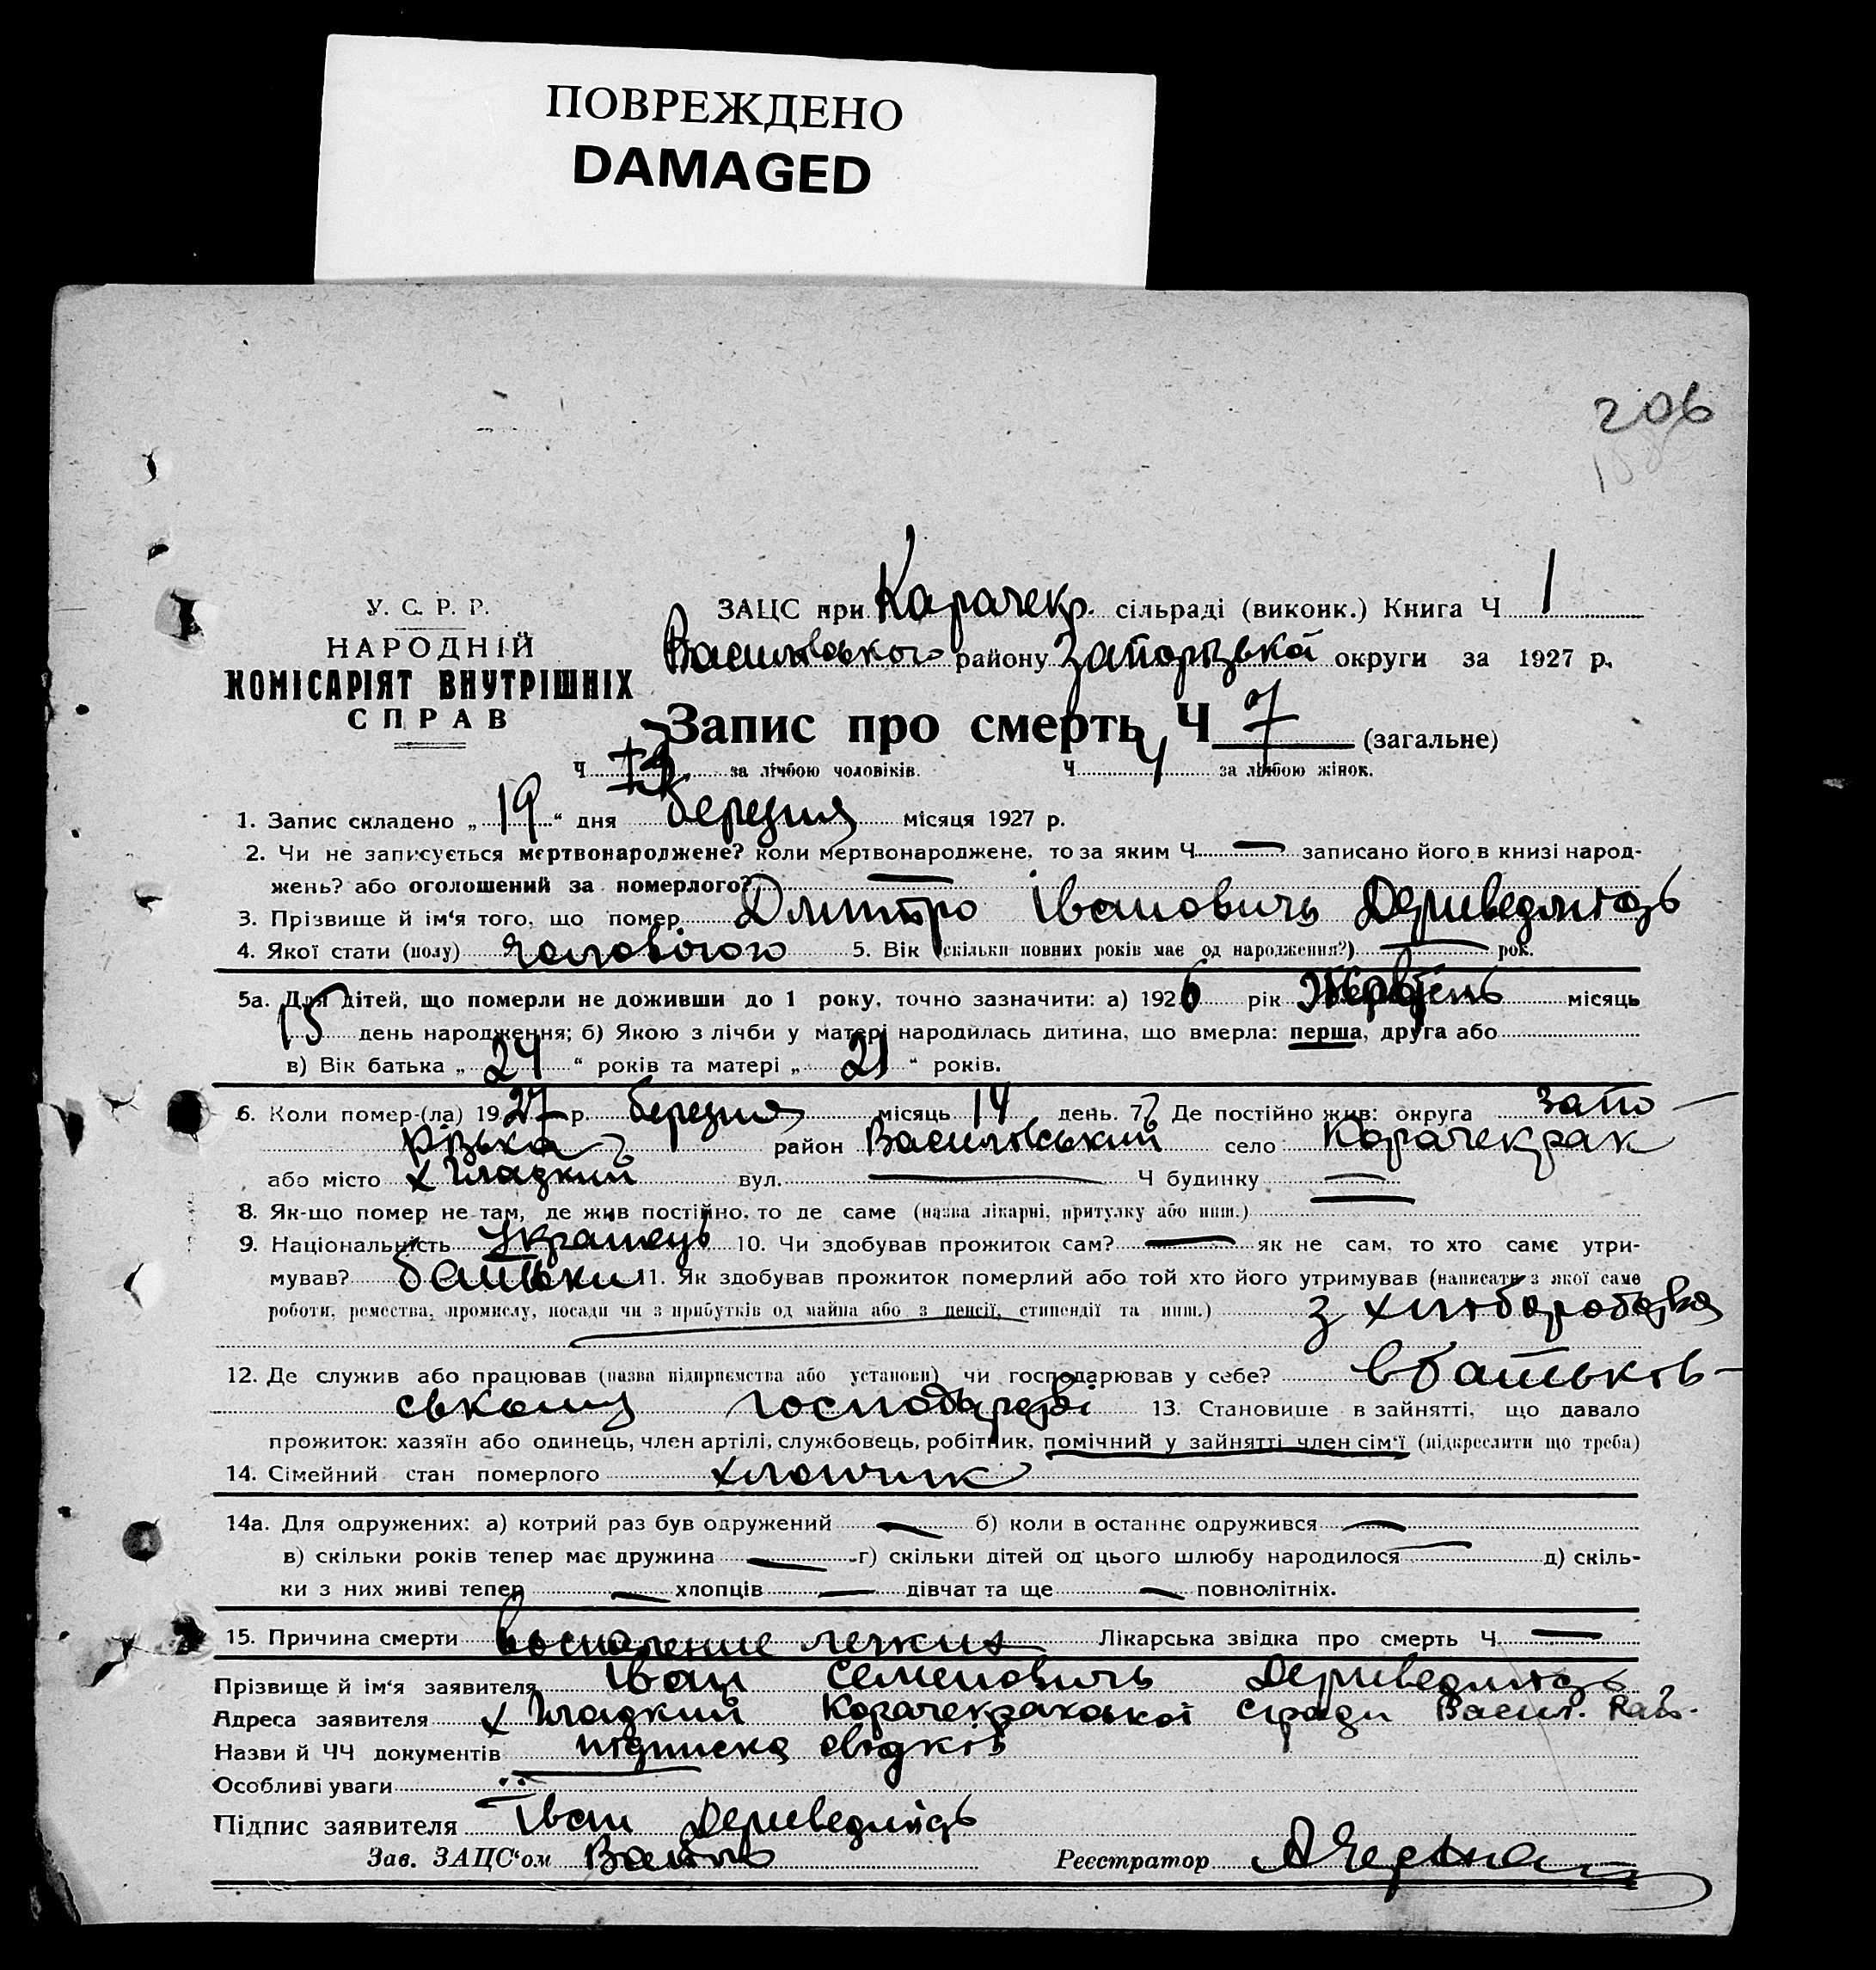 ПОВРЕЖДЕНО
DAMAGED
206
У. С. Р. Р.
НАРОДНІЙ
КОМІСАРІЯТ ВНУТРІШНІХ
СПРАВ
ЗАЦС при Карачекр. сільраді (виконк.) Книга Ч 1
Василівського району Запорізької округи за 1927 р.
Запис про смерть Ч 7 (загальне)
Ч 3 за лічбою чоловіків. Ч 4 за лічбою жінок.
1. Запис складено „ 19 “ дня березня місяця 1927 р.
2. Чи не записується мертвонароджене? коли мертвонароджене, то за яким Ч. — записано його в книзі народ-
жень? або оголошений за померлого? —
3. Прізвище й ім‘я того, що помер Дмитро Івановичь Дериведмідь
4. Якої стати (полу) чоловічого 5. Вік (скільки повних років має од народження?) — рок.
5а. Для дітей, що померли не доживши до 1 року, точно зазначити: а) 1926 рік Жовтень місяць
15 день народження; б) Якою з лічби у матері народилась дитина, що вмерла: перша, друга або
в) Вік батька „ 24 “ років та матері „ 21 “ років.
6. Коли помер-(ла) 1927 р. березня місяць 14 день. 7. Де постійно жив: округа Запо-
різька район Василівський село Карачекрак
або місто х Гладкий вул. — Ч будинку —
8. Як-що помер не там, де жив постійно, то де саме (назва лікарні, притулку або инш.) —
9. Національність Українець 10. Чи здобував прожиток сам? — як не сам, то хто саме утри-
мував? батьки 11. Як здобував прожиток померлий або той хто його утримував (написати з якої саме
роботи, ремества, промислу, посади чи з прибутків од майна або з пенсії, стипендії та инш.) з хліборобства
12. Де служив або працював (назва підприємства або установи) чи господарював у себе? в батьков-
ському господарстві 13. Становище в зайнятті, що давало
прожиток: хазяїн або одинець, член артілі, службовець, робітник, помічний у зайнятті член сім‘ї (підкреслити що треба)
14. Сімейний стан померлого хлопчик
14а. Для одружених: а) котрий раз був одружений — б) коли в останнє одружився —
в) скільки років тепер має дружина — г) скільки дітей од цього шлюбу народилося — д) скіль-
ки з них живі тепер — хлопців — дівчат та ще — повнолітніх.
15. Причина смерти воспаление легких Лікарська звідка про смерть Ч. —
Прізвище й ім‘я заявителя Іван Семеновичь Дериведмідь
Адреса заявителя х Гладкий Карачекракської с/ради Васил. Рай.
Назви й ЧЧ документів підписка свідків
Особливі уваги
Підпис заявителя Іван Дериведмідь
Зав. ЗАЦС‘ом Реєстратор